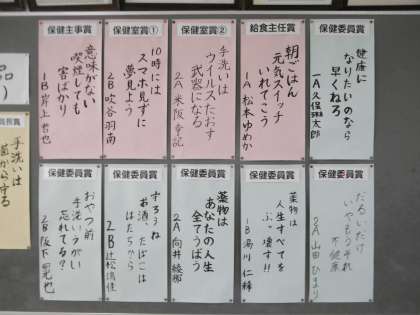 保健主事賞
意味がない
喫煙しても
害ばかり
1B 岸上哲也
保健室賞①
10時には
スマホ見ずに
夢見よう
2B 吹谷羽南
保健室賞②
手洗いは
ウイルスたおす
武器になる
2A 米阪幸記
給食主任賞
朝ごはん
元気スイッチ
いれてこう
1A 松本ゆめか
保健委員賞
健康に
なりたいのなら
早くねろ
1A 久保
太郎
手洗いは
菌から守る
保健委員賞
おやつ前
手洗いうがい
忘れてる?
2B 阪下
也
保健委員賞
守ろうね
お酒、たばこは
はたちから
2B 辻松
保健委員賞
薬物は
あなたの人生
全てうばう
2A 向井
保健委員賞
薬物は
人生すべてを
ぶっ壊す!!
1B 湯川仁
保健委員賞
だるいだけ
いやもうそれ
不健康
2A 山田ひまり